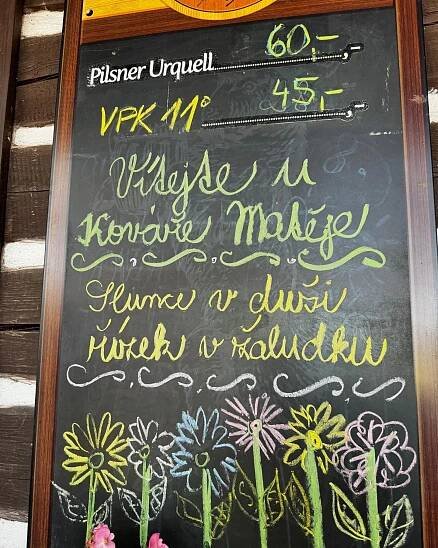 Pilsner Urquell 60,-
VPK 11° 45,-
Vítejte u
Kováře Matěje
Slunce v duši
řízek v žaludku